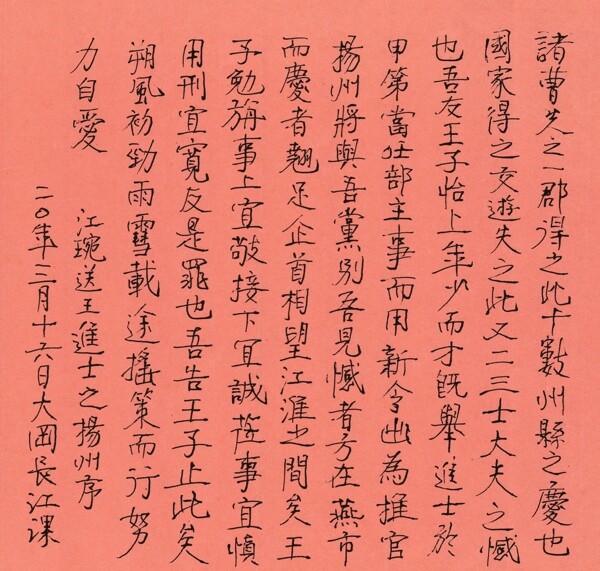 諸曹失之一郡得之此十數州縣之慶也
國家得之交遊失之此又二三士大夫之憾
也吾友王子怡上年少而才既舉進士於
甲第當任部主事而用新令出為推官
揚州將與吾黨別吾見憾者方在燕市
而慶者翹足企首相望江淮之間矣王
子勉旃事上宜敬接下宜誠莅事宜慎
用刑宜寬反是罪也吾告王子止此矣
朔風初勁雨雪載途搖策而行努
力自愛
江琬送王進士之揚州序
二〇年三月十六日大岡長江課